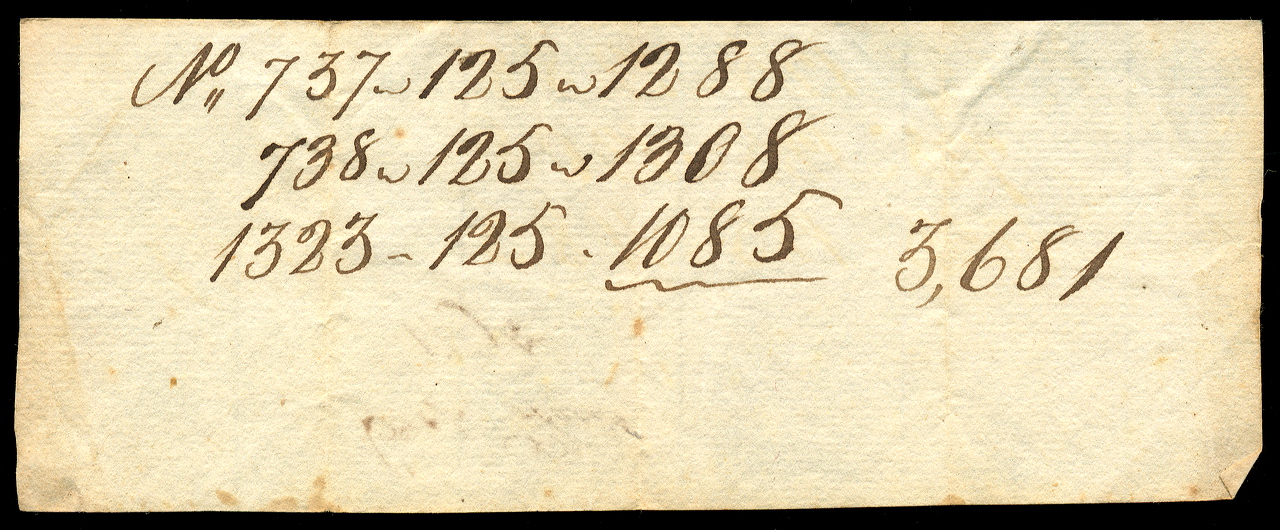 No,, 737 " 125 " 1288
738 " 125 " 1308
1323 - 125 - 1085 3,681